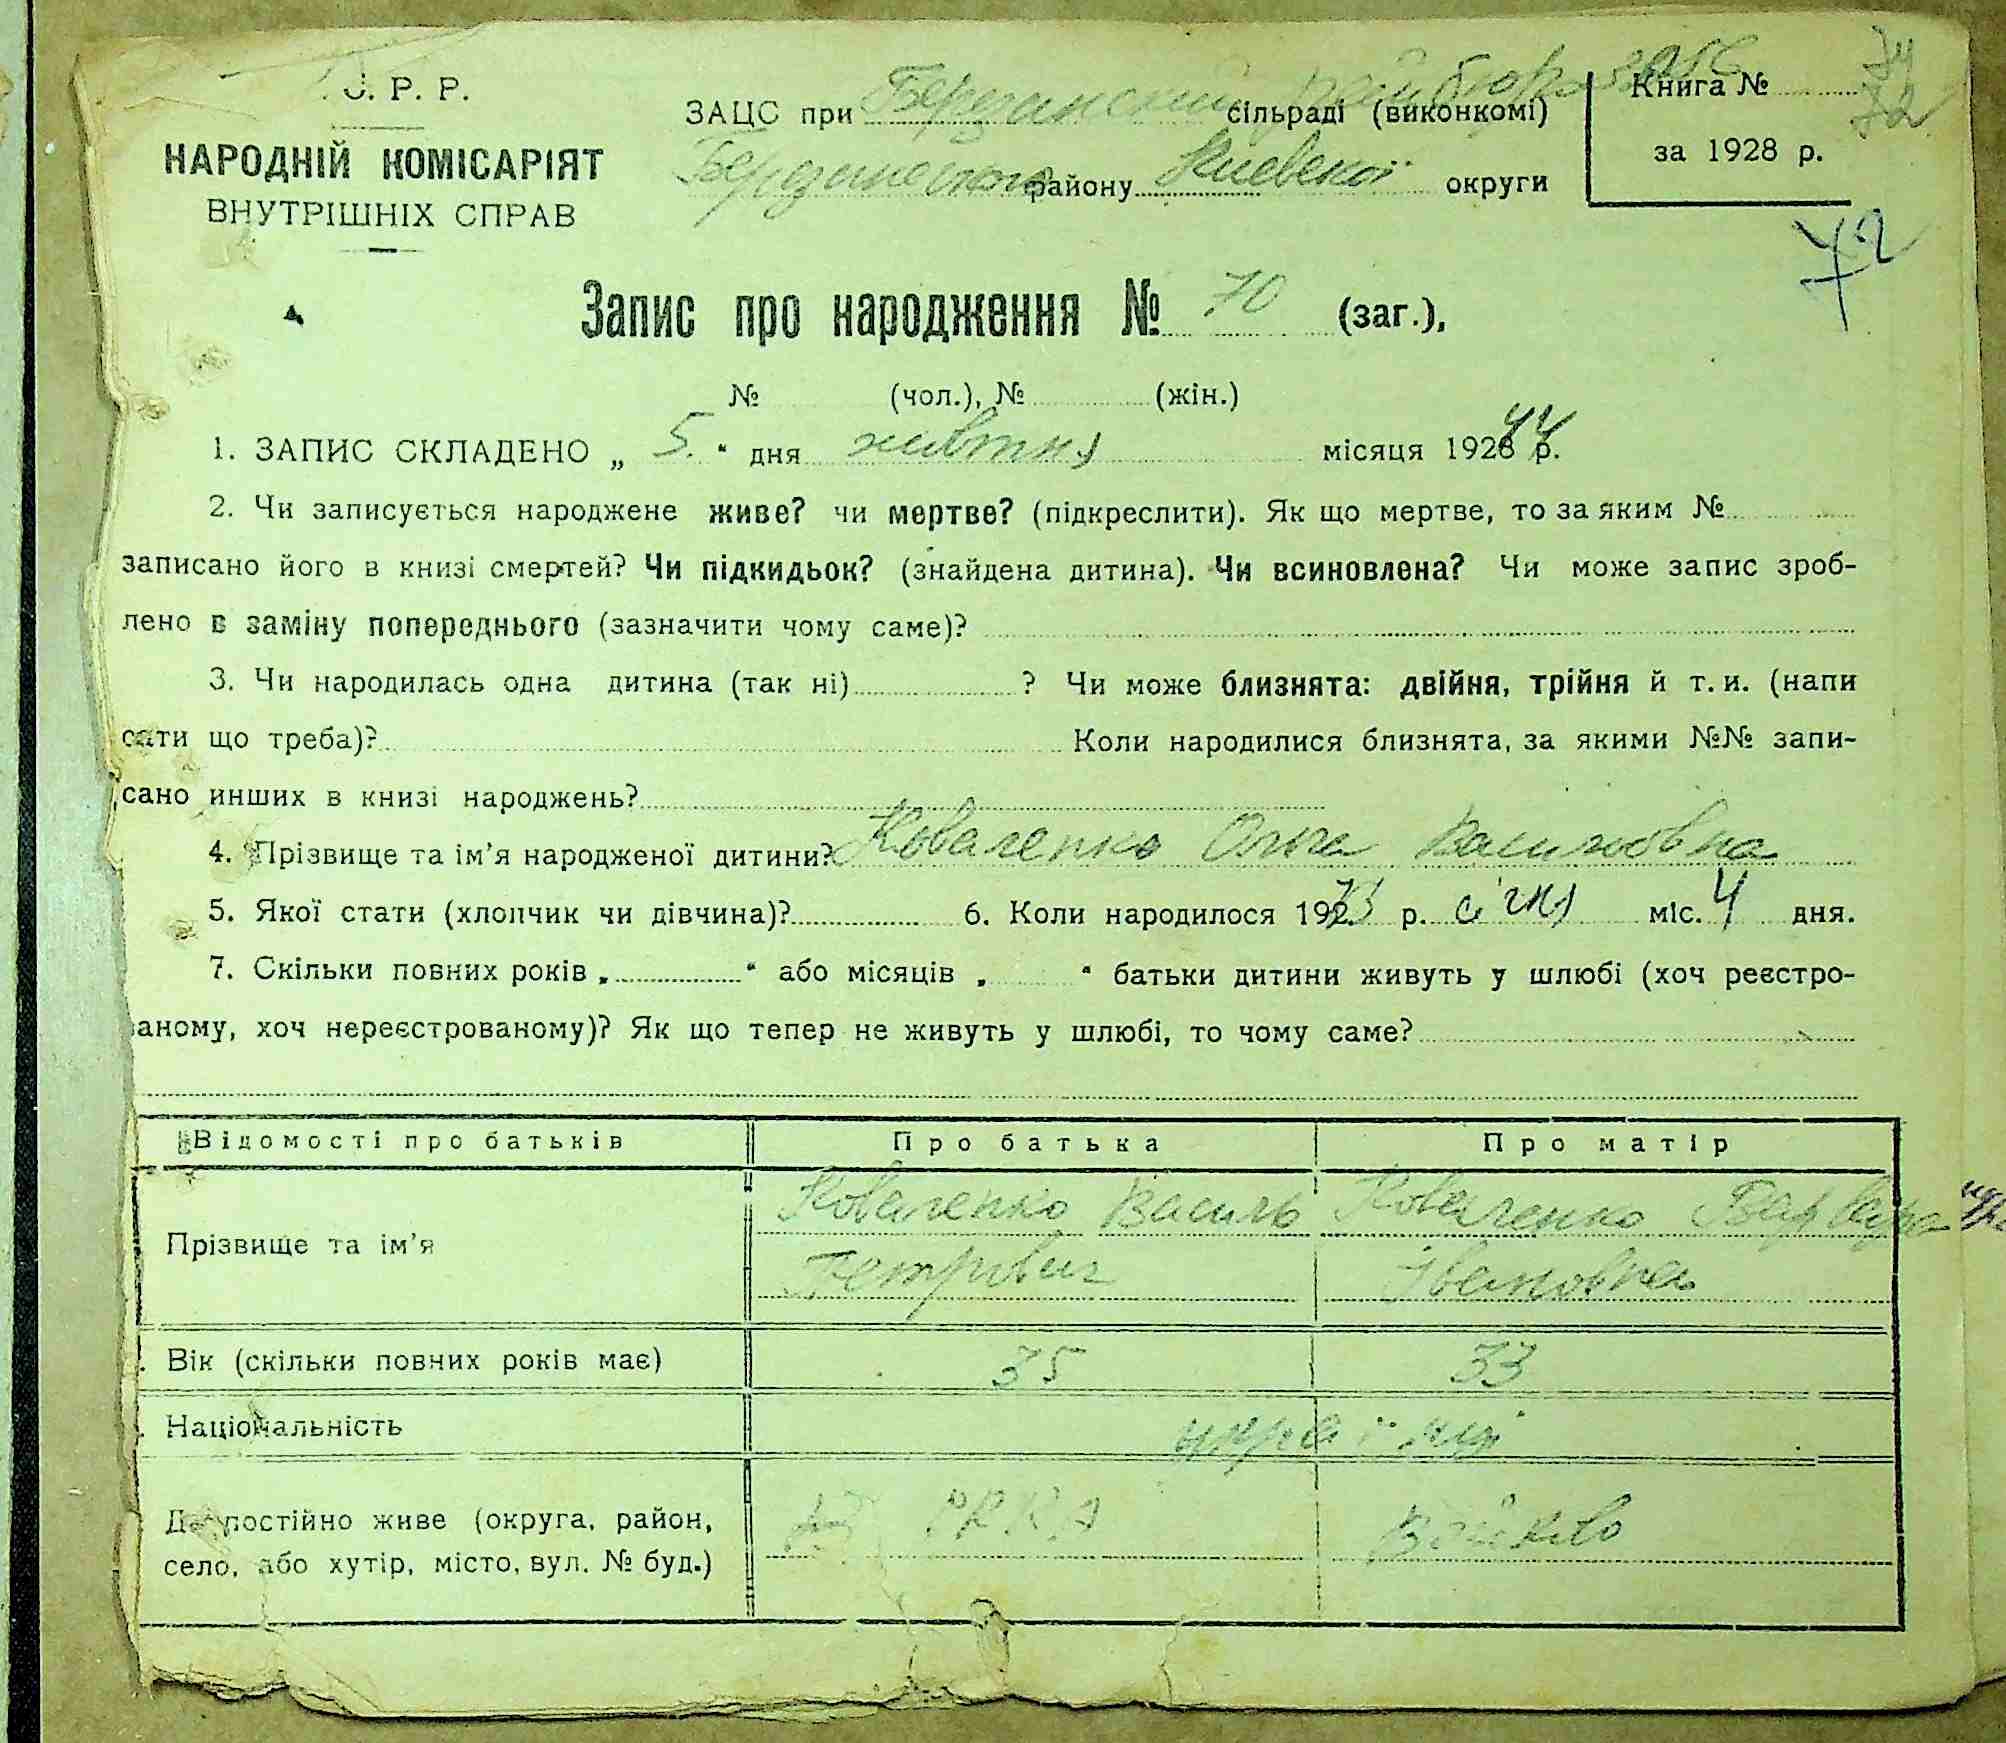 .Р.Р.
НАРОДНІЙ КОМІСАРІЯТ
ВНУТРІШНІХ СПРАВ
ЗАЦС при Березанський сільраді (виконкомі)
району Киевскої округи
Книга №
за 1928 р.
72
Запис про народження № 70 (заг.),
№ (чол.), № (жін.)
1. ЗАПИС СКЛАДЕНО „ 5. “ дня жовтня місяця 1928 44 р.
2. Чи записується народжене живе? чи мертве? (підкреслити). Як що мертве, то за яким №
записано його в книзі смертей? Чи підкидьок? (знайдена дитина). Чи всиновлена? Чи може запис зроб-
лено в заміну попереднього (зазначити чому саме)?
3. Чи народилась одна дитина (так ні) ? Чи може близнята: двійня, трійня й т. и. (напи
сати що треба)? Коли народилися близнята, за якими №№ запи-
сано инших в книзі народжень?
4. Прізвище та ім’я народженої дитини? Коваленко Ольга Василювна
5. Якої стати (хлопчик чи дівчина)? 6. Коли народилося 192 р. січня міс. 4 дня.
7. Скільки повних років „ “ або місяців „ “ батьки дитини живуть у шлюбі (хоч реєстро-
аному, хоч нереєстрованому)? Як що тепер не живуть у шлюбі, то чому саме?
Відомості про батьків Про батька Про матір
Прізвище та ім’я
Коваленко Василь Коваленко Варвара
Петрович Івановна
Вік (скільки повних років має) 35 33
Національність українці
Де постійно живе (округа, район,
село, або хутір, місто, вул. № буд.)
РККА Войково